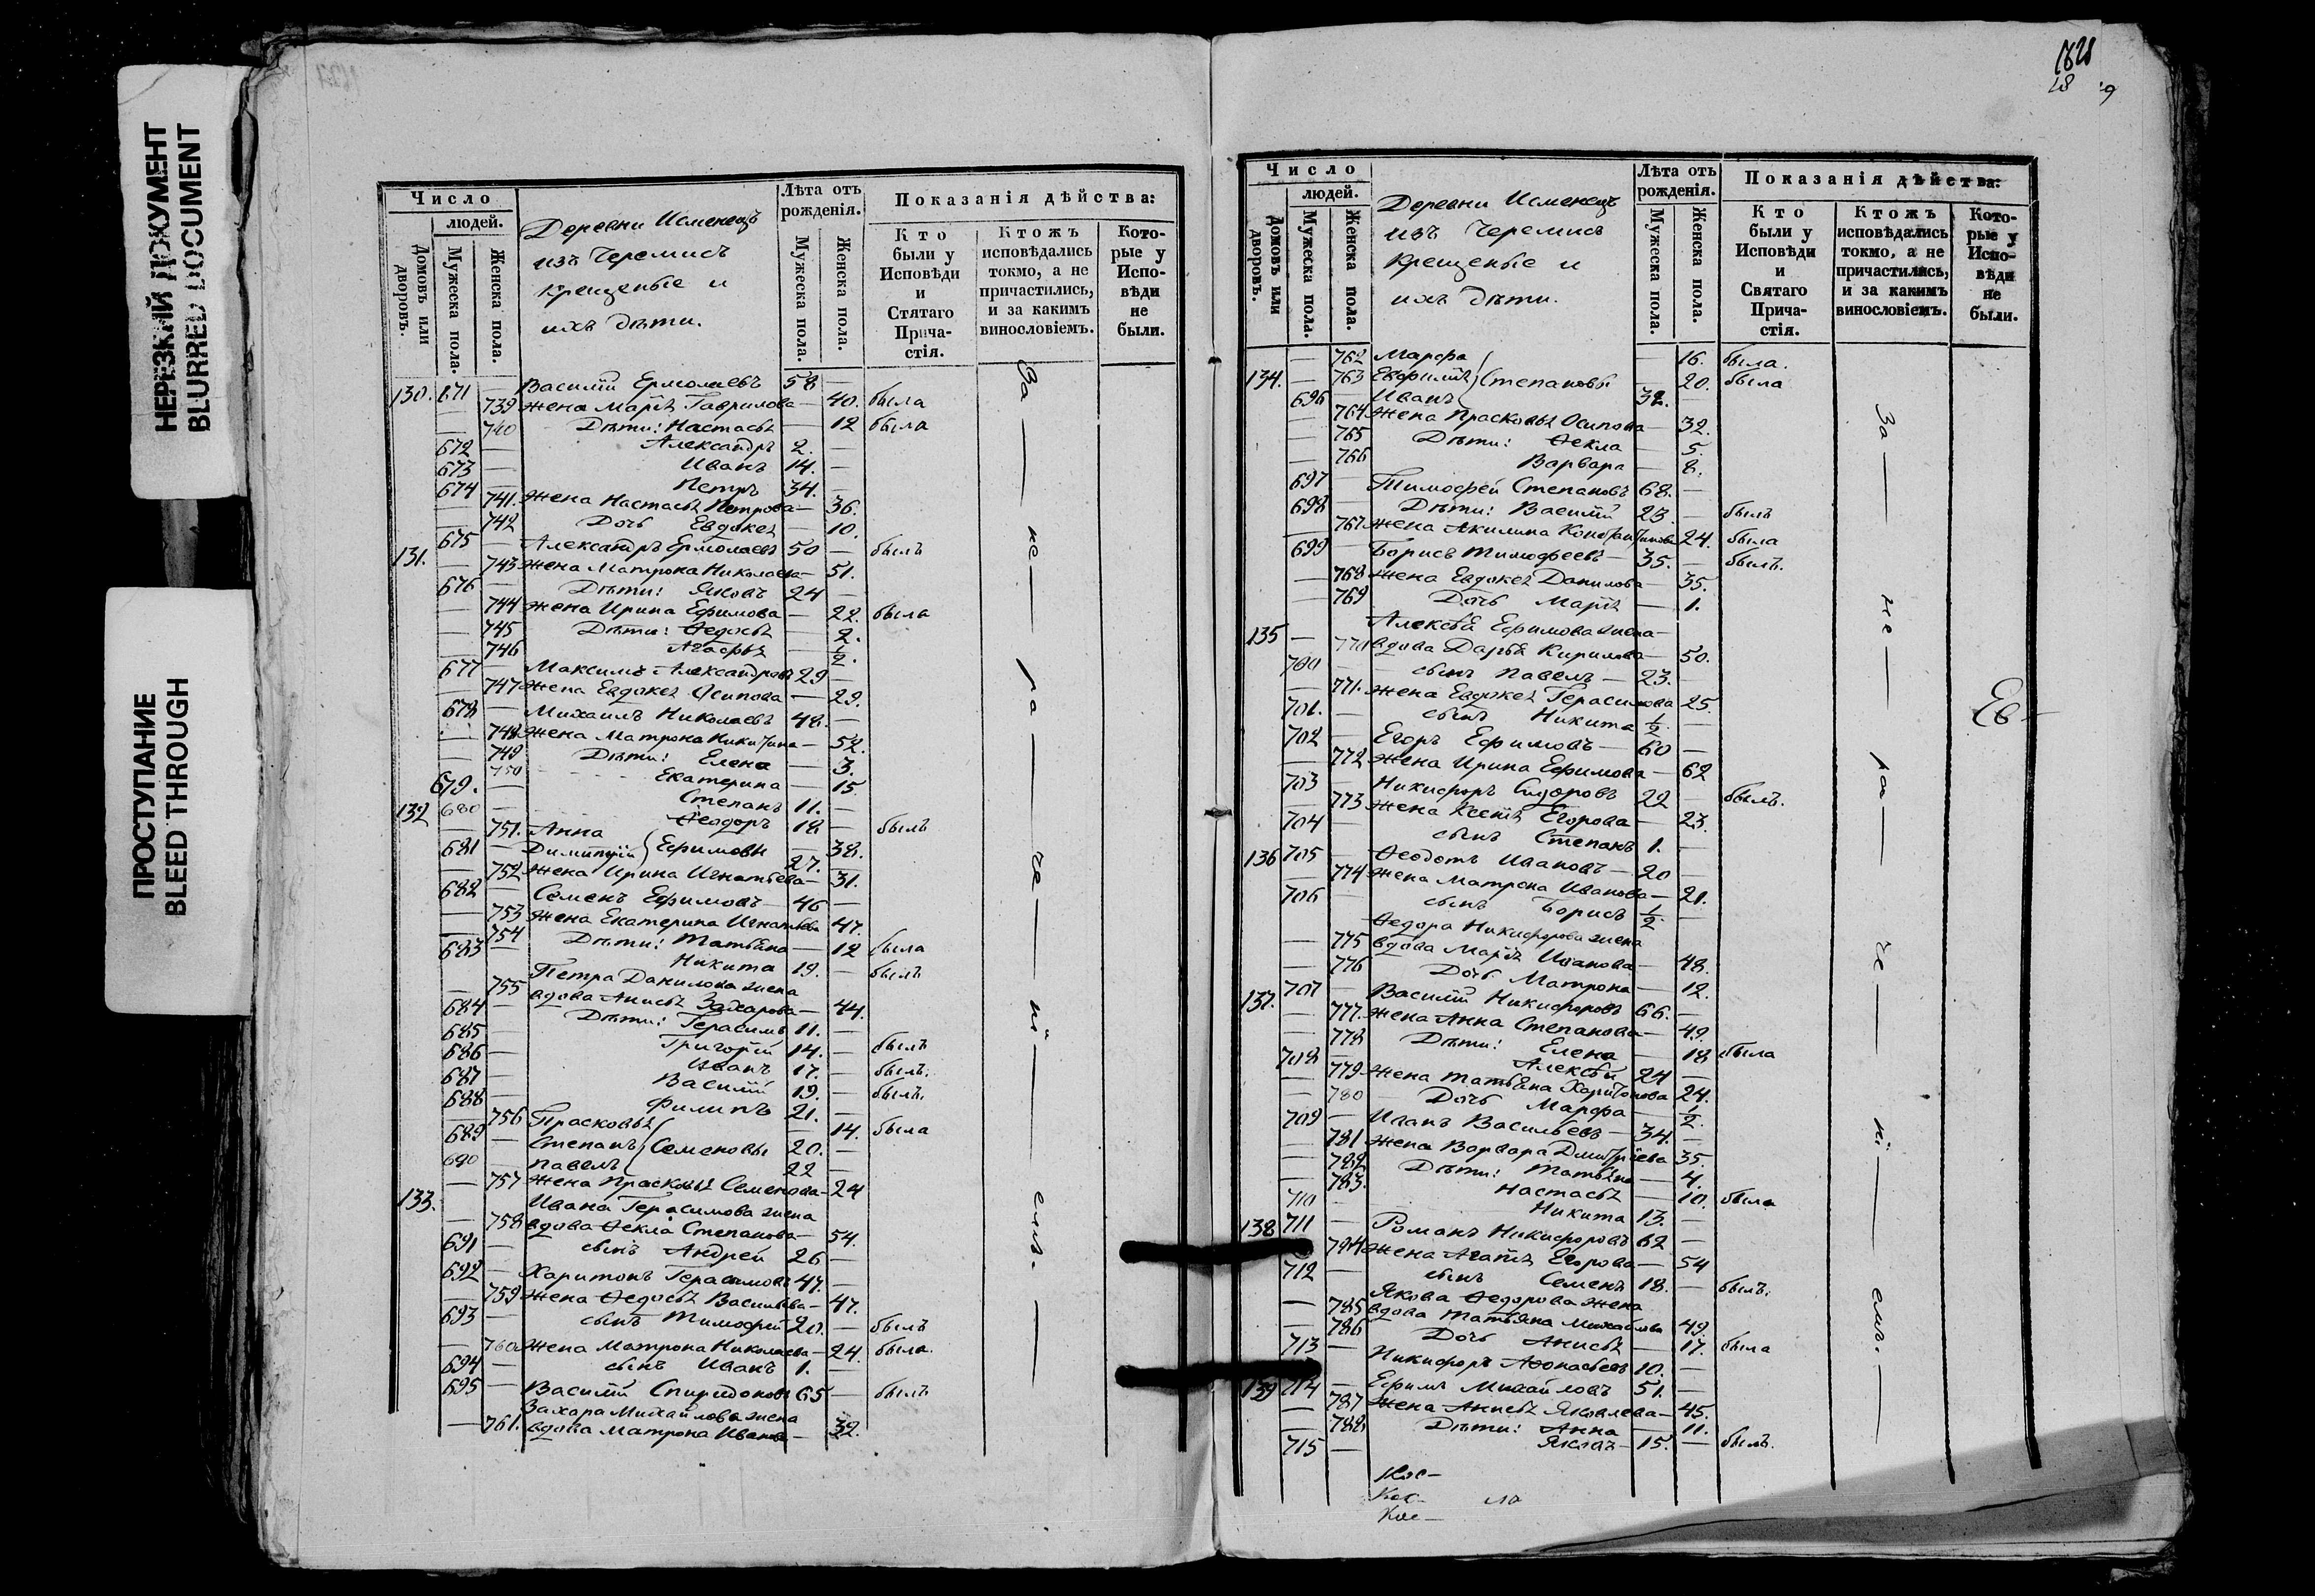 НЕРЕЗКИЙ ДОКУМЕНТ
BLURRED DOCUMENT
ПРОСТУПАНИЕ
BLEED THROUGH
Число
людей.
Домовъ или дворовъ.
Мужеска пола.
Женска пола.
Деревни Исменецъ
изъ Черемисъ
крещеные и
ихъ дѣти.
Лѣта отъ рожденія.
Мужеска пола.
Женска пола.
Показанія дѣйства:
Кто были у Исповѣди и Стятаго Прича-стія.
Ктожъ исповѣдались токмо, а не причастились, и за какимъ винословіемъ.
Кото-рые у Испо-вѣди не были.
130. 671 — Василій Ермолаевъ 58 —
— 739 жена Марія Гаврилова — 40. была
— 740 Дѣти: Настасья — 12 была
672 — Александръ 2. —
673 — Иванъ 14. —
674 — Петръ 34. —
— 741. жена Настасья Петрова — 36.
— 742 Дочь Евдокея — 10.
131. 675 — Александръ Ермолаевъ 50 — былъ
— 743 жена Матрона Николаева — 51.
676 — Дѣти: Яковъ 24 —
— 744 жена Ирина Ефимова — 22. была
— 745 Дѣти: Ѳедосья — 2.
— 746 Агафья — 1/2.
677 — Максимъ Александровъ 29 —
— 747 жена Евдокея Осипова — 29.
678 — Михаилъ Николаевъ 48. —
— 748 жена Матрона Никитина — 52.
— 749 Дѣти: Елена — 3.
750 Екатерина — 15.
679. — Степанъ 11. —
132 680 — Ѳеодоръ 18 — былъ
— 751. Анна } Ефимовы — 38.
681 — Димитрій 27. —
— 752 жена Ирина Игнатьева — 31.
682 — Семенъ Ефимовъ 46 —
— 753 жена Екатерина Игнатьева 47.
— 754 Дѣти: Татьяна — 12 была
683 — Никита 19. — былъ
Петра Данилова жена
— 755 вдова Анисья Захарова — 44.
684 — Дѣти: Герасимъ 11. —
685 — Григорій 14. — былъ
686 — Иванъ 17. — былъ.
687 — Василій 19. — былъ.
688 — Филипъ 21. —
— 756 Прасковья — 14. была
689 — Степанъ } Семеновы 20. —
690 — Павелъ 22 —
— 757 жена Прасковья Семенова — 24
133. Ивана Герасимова жена
— 758 вдова Ѳекла Степанова — 54.
691 — сынъ Андрей 26 —
692 — Харитонъ Герасимовъ 47. —
— 759 жена Ѳедосья Васильева — 47.
693 — сынъ Тимофей 20. — былъ
— 760 жена Матрона Николаева — 24. была.
694 — сынъ Иванъ 1. —
695 — Василій Спиридоновъ 65 — былъ
Захара Михайлова жена
— 761. вдова Матрона Иванова — 32.
За — не — ра — че — ні — емъ. —
1828
28
Число
людей.
Домовъ или дворовъ.
Мужеска пола.
Женска пола.
Деревни Исменецъ
изъ Черемисъ
крещеные и
ихъ дѣти.
Лѣта отъ рожденія.
Мужеска пола.
Женска пола.
Показанія дѣйства:
Кто были у Исповѣди и Святаго Прича-стія.
Ктожъ исповѣдались токмо, а не причастились, и за какимъ винословіемъ.
Кото-рые у Испо-вѣди не были.
— 762 Марфа — 16. была.
134. — 763 Евфимія } Степановы — 20. была
696 Иванъ 32. —
— 764 жена Прасковья Осипова — 32.
— 765 Дѣти: Ѳекла — 5.
— 766 Варвара — 8.
697 — Тимофей Степановъ 68. —
698 Дѣти: Василій 23. — былъ
767 жена Акилина 24. была
699 — Борисъ Тимофеевъ — 35. — былъ.
— 768 жена Евдокея Данилова — 35.
— 769 Дочь Марія — 1.
Алексѣя Ефимова жена —
135 — 770 вдова Дарья Кирилова — 50.
700 — сынъ Павелъ — 23. —
— 771. жена Евдокея Герасимова 25.
701. — сынъ Никита 1/2. —
702 — Егоръ Ефимовъ — 60 —
— 772 жена Ирина Ефимова — 62
703 — Никифоръ Сидоровъ 22 — былъ.
— 773 жена Ксенія Егорова — 23.
704 сынъ Степанъ 1. —
136 705 — Ѳеодотъ Ивановъ — 20 —
— 774 жена Матрона Иванова — 21.
706 — сынъ Борисъ 1/2 —
Ѳедора Никифорова жена
— 775 вдова Марія Иванова — 48.
— 776 Дочь Матрона — 12.
137. 707 — Василій Никифоровъ 66. —
— 777. жена Анна Степанова — 49.
— 778 Дѣти: Елена — 18 была
708 — Алексѣй 24 —
— 779 жена Татьяна Харитонова 24.
— 780 Дочь Марфа — 1/2.
709 — Иванъ Васильевъ — 34. —
— 781 жена Варвара Дмитріева 35.
— 782 Дѣти: Татьяна — 4.
— 783. Настасья — 10. была
710 Никита 13. —
138 711 — Романъ Никифоровъ 62 —
784 жена Агапія Егорова — 54
712 — сынъ Семенъ 18. — былъ.
Якова Ѳедорова жена
— 785 вдова Татьяна Михайлова 49.
— 786 Дочь Анисья — 17. была
713 — Никифоръ Афонасьевъ 10. —
139 714 — Ефимъ Михайловъ 51. —
— 787 жена Анисья Яковлева — 45.
— 788 Дѣти: Анна — 11.
715 — Яковъ — 15. — былъ.
За — не — ра — че — ні — емъ. —
Ев—
Кос—
Кос—
Кос—